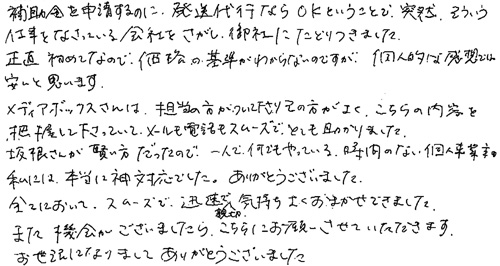 補助金を申請するのに、発送代行ならOKということで、突然、そういう
仕事をなさっている会社をさがし、御社にたどりつきました。
正直 初めてなので、価格の基準がわからないのですが、個人的な感想では
安いと思います。
メディアボックスさんは、担当の方がついて下さりその方がよく、こちらの内容を
把握して下さっていて、メールも電話もスムーズで、とても助かりました。
坂根さんが賢い方だったので、一人で何でもやっている、時間のない個人事業主の
私には、本当に神対応でした。ありがとうございました。
全てにおいて、スムーズで、迅速で、気持ちよくおまかせできました。
親切で、
また機会がございましたら、こちらにお願いさせていただきます。
お世話になりまして ありがとうございました